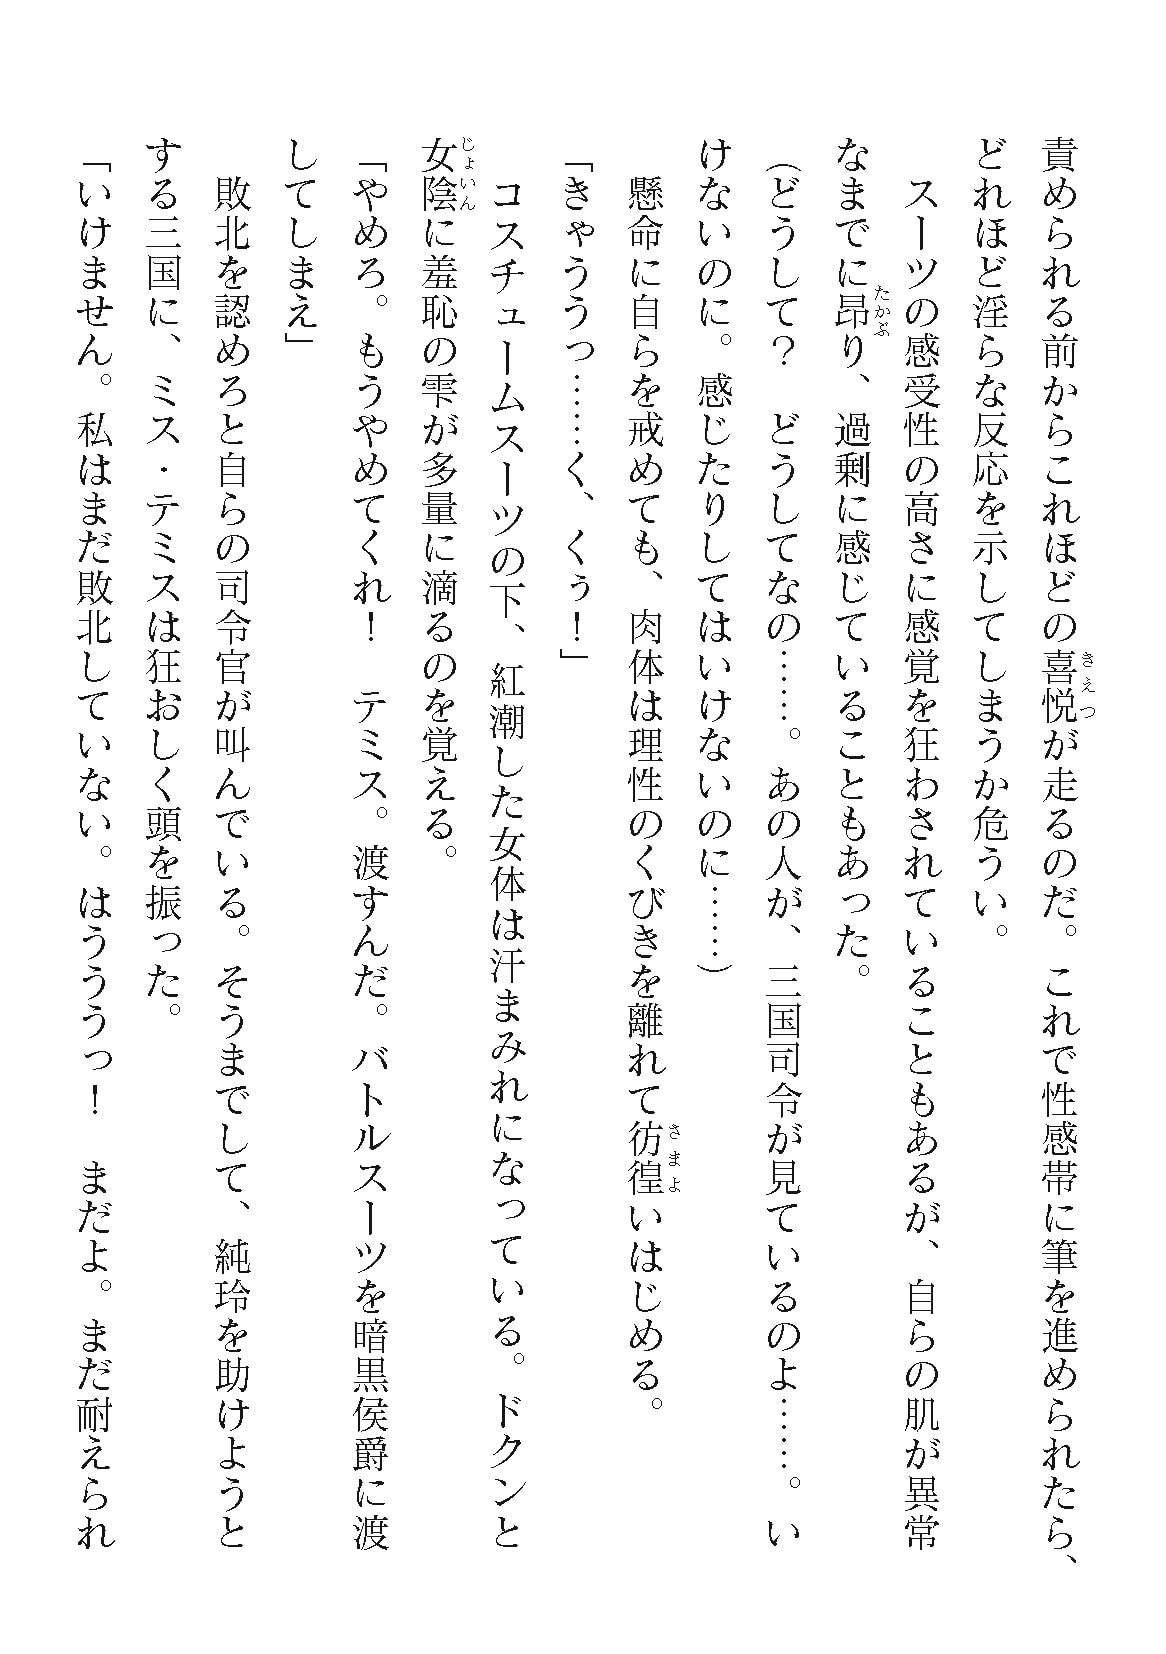 責められる前からこれほどの喜悦が走るのだ。これで性感帯に筆を進められたら、
どれほど淫らな反応を示してしまうか危うい。
　スーツの感受性の高さに感覚を狂わされていることもあるが、自らの肌が異常
なまでに昂り、過剰に感じていることもあった。
（どうして？　どうしてなの……。あの人が、三国司令が見ているのよ……。い
けないのに。感じたりしてはいけないのに……）
　懸命に自らを戒めても、肉体は理性のくびきを離れて彷徨いはじめる。
「きゃううっ……く、くぅ！」
　コスチュームスーツの下、紅潮した女体は汗まみれになっている。ドクンと
女陰に羞恥の雫が多量に滴るのを覚える。
「やめろ。もうやめてくれ！　テミス。渡すんだ。バトルスーツを暗黒侯爵に渡
してしまえ」
　敗北を認めろと自らの司令官が叫んでいる。そうまでして、純玲を助けようと
する三国に、ミス・テミスは狂おしく頭を振った。
「いけません。私はまだ敗北していない。はうううっ！　まだよ。まだ耐えられ